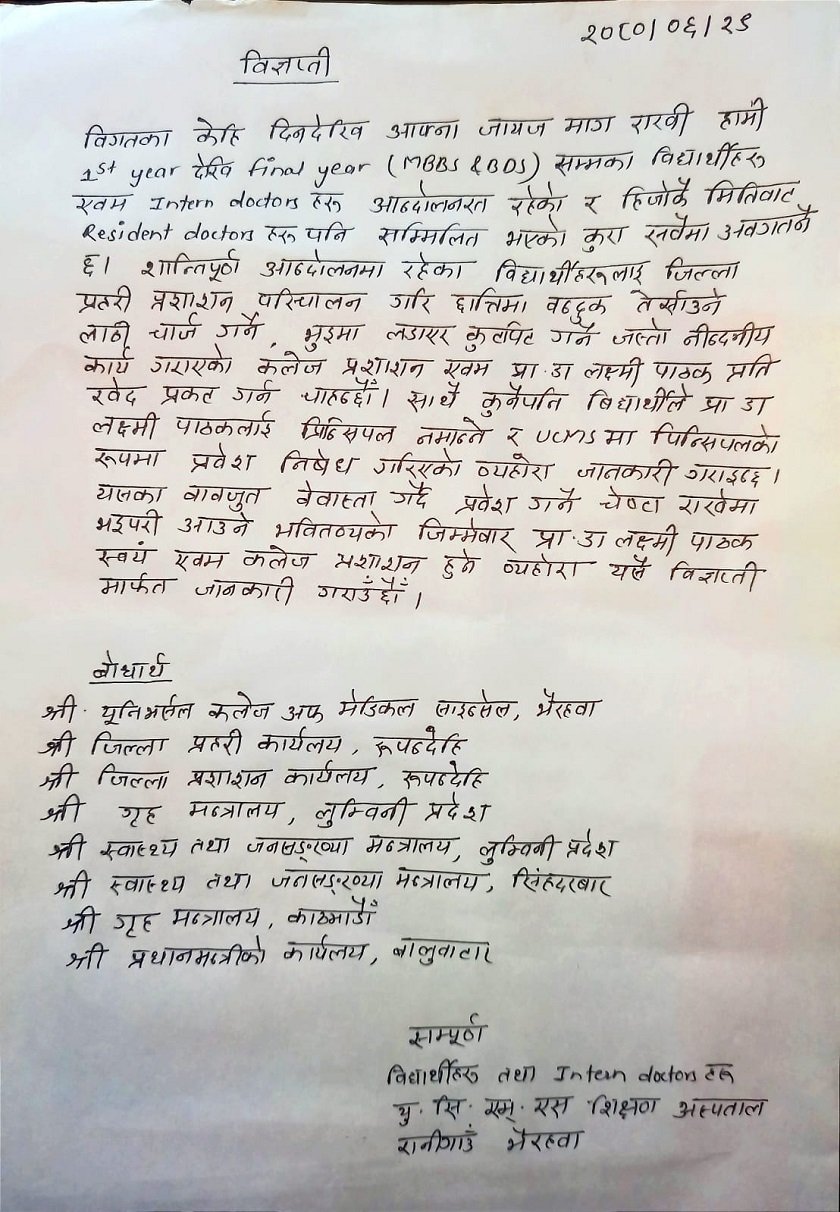 २०८०।०६।२९
विज्ञप्ती
विगतका केहि दिनदेखि आफ्ना जायज माग राखी हामी
1st year देखि final year (MBBS & BDS) सम्मका विद्यार्थीहरु
एवम Intern doctors हरु आन्दोलनरत रहेको र हिजोकै मितिबाट
Resident doctors हरु पनि सम्मिलित भएको कुरा सबैमा अवगतनै
छ। शान्तिपूर्ण आन्दोलनमा रहेका विद्यार्थीहरुलाइ जिल्ला
प्रहरी प्रशाशन परिचालन गरि छातिमा बन्दुक तेर्साउने
लाठी चार्ज गर्ने, भुइमा लडाएर कुटपिट गर्ने जस्तो नीन्दनीय
कार्य गराएको कलेज प्रशाशन एवम प्रा.डा लक्ष्मी पाठक प्रति
खेद प्रकट गर्न चाहन्छौं। साथै कुनैपनि बिद्यार्थीले प्रा डा
लक्ष्मी पाठकलाई प्रिन्सिपल नमान्ने र UCMS मा पिन्सिपलको
रूपमा प्रवेश निषेध गरिएको व्यहोरा जानकारी गराइन्छ।
यसका वावजुत वेवास्ता गर्दै प्रवेश गर्ने चेष्टा राखेमा
भइपरी आउने भवितव्यको जिम्मेवार प्रा.डा लक्ष्मी पाठक
स्वयं एवम कलेज प्रशाशन हुने व्यहोरा यसै विज्ञप्ती
मार्फत जानकारी गराउँछौँ।
बोधार्थ
श्री. यूनिभर्सल कलेज अफ मेडिकल साइन्सेस, भैरहवा
श्री जिल्ला प्रहरी कार्यलय, रूपन्देहि
श्री जिल्ला प्रशाशन कार्यलय, रूपन्देहि
श्री गृह मन्त्रालय, लुम्विनी प्रदेश
श्री स्वास्थ्य तथा जनसङ्ख्या मन्त्रालय, लुम्विनी प्रदेश
श्री स्वास्थ्य तथा जनसङ्ख्या मन्त्रालय, सिंहदरबार
श्री गृह मन्त्रालय, काठमाडौँ
श्री प्रधानमन्त्रीको कार्यलय, बालुवाटार
सम्पूर्ण
विद्यार्थीहरु तथा Intern doctors हरु
यु. सि. एम्. एस शिक्षण अस्पताल
रानीगाउँ भैरहवा